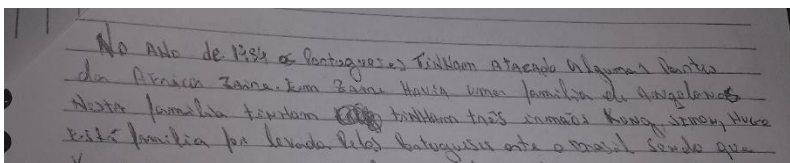 No ANO de 1984 os Portugueses TiNHam ATACADO algumas Partes
da Africa Zaire. Em Zaire HAViA uma família de Angolanos
Nesta família tinham tiNHam três irmãos Kong, Simon, Hugo
Está família foi levada Pelos Portugueses até o Brasil Sendo que